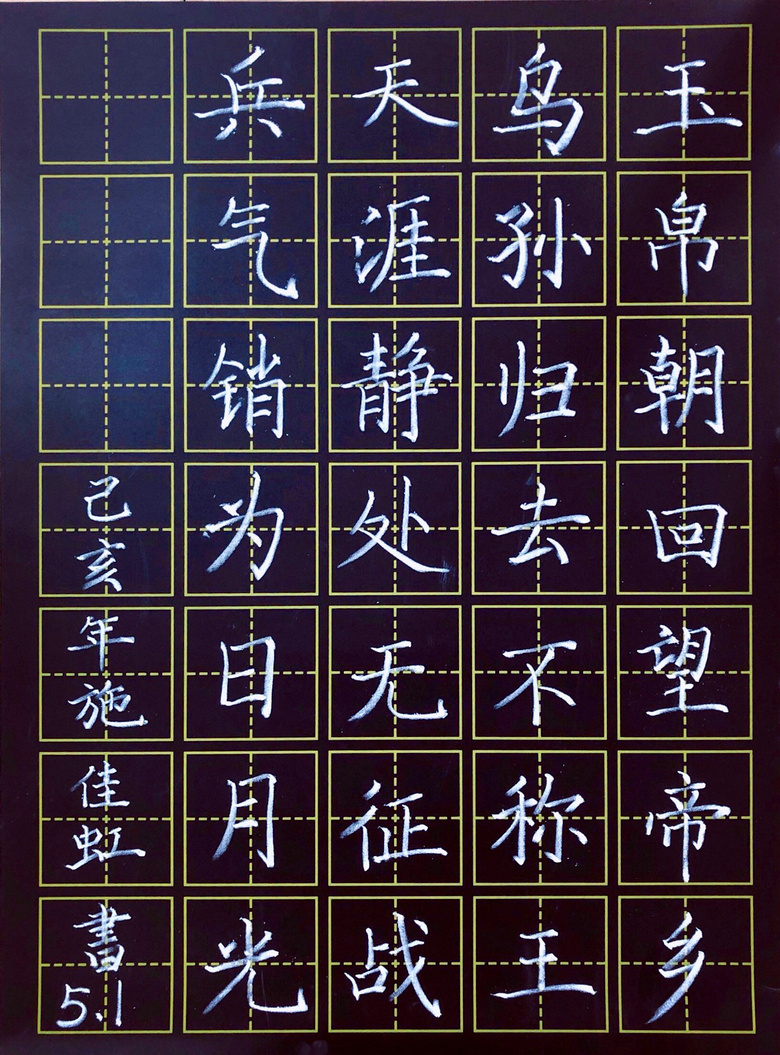 玉帛朝回望帝乡
乌孙归去不称王
天涯静处无征战
兵气销为日月光
己亥年施佳虹書
5.1